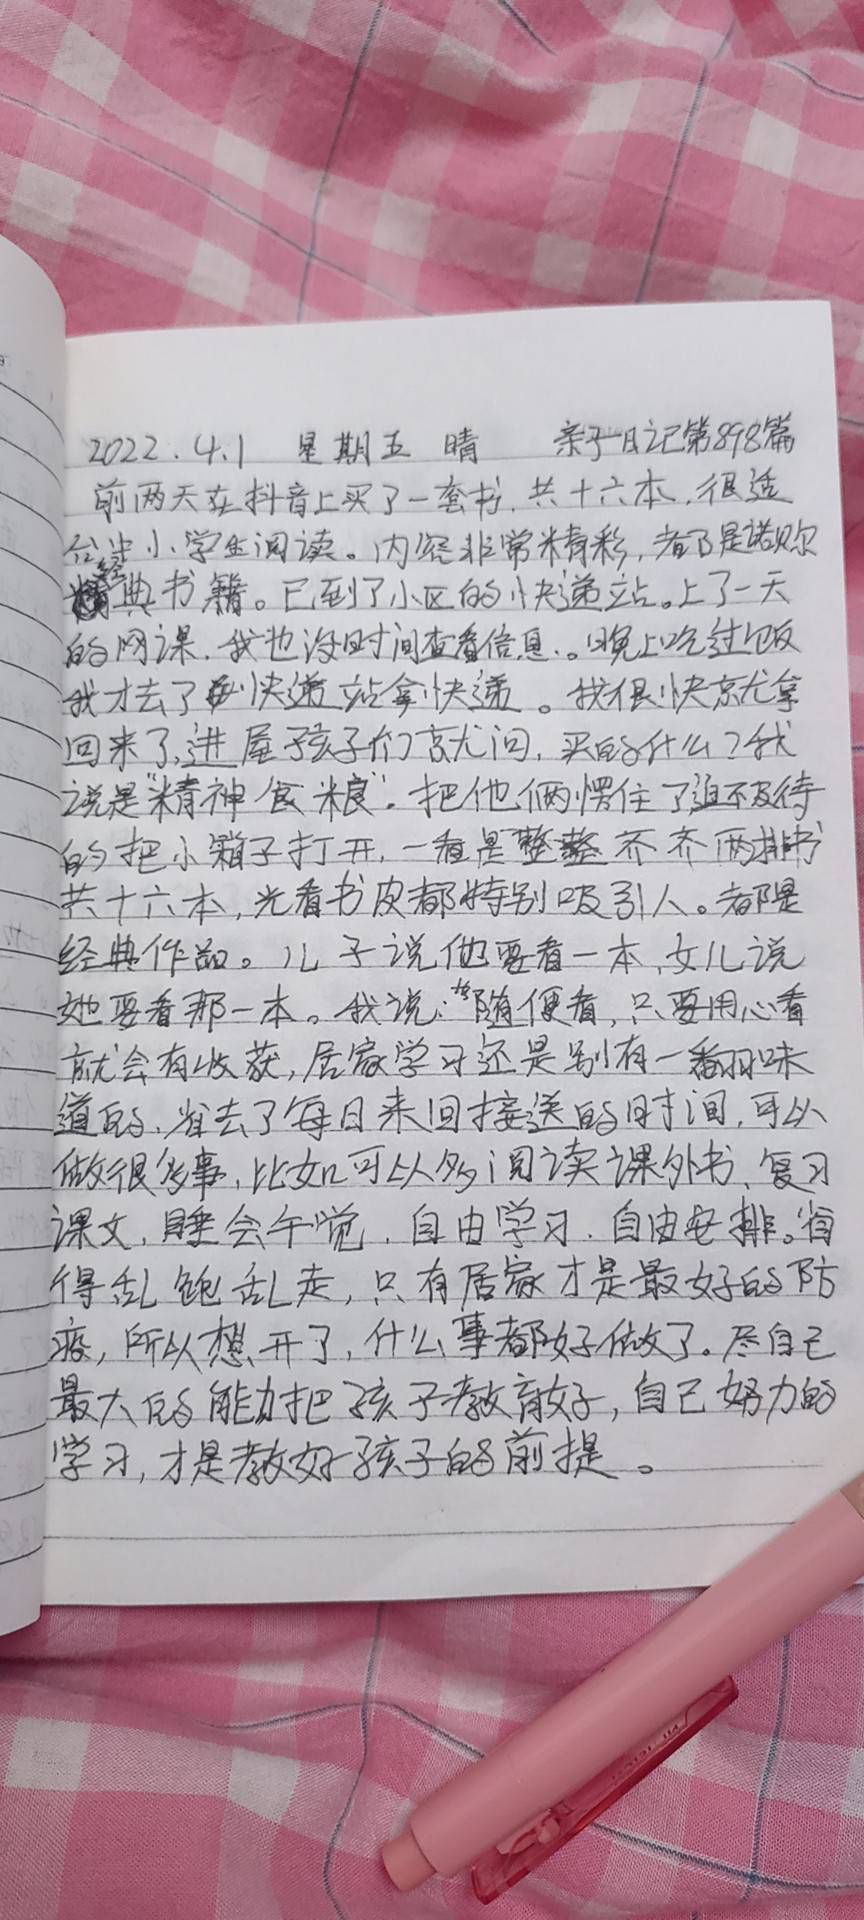 2022.4.1 星期五 晴 亲子日记第898篇
前两天在抖音上买了一套书,共十六本,很适
合小学生阅读。内容非常精彩,都是诺贝尔
经典书籍。已到了小区的快递站。上了一天
的网课,我也没时间查看信息。晚上吃过饭
我才去了快递站拿快递。我很快就拿
回来了,进屋孩子们就问,买的什么?我
说是“精神食粮”.把他俩愣住了迫不及待
的把小箱子打开,一看是整整齐齐两排书
共十六本,光看书皮都特别吸引人。都是
经典作品。儿子说他要看一本,女儿说
她要看那一本。我说:“随便看,只要用心看
就会有收获,居家学习还是别有一番味
道的,省去了每日来回接送的时间,可以
做很多事,比如可以多阅读课外书、复习
课文,睡会午觉,自由学习.自由安排。省
得乱跑乱走,只有居家才是最好的防
疫,所以想开了,什么事都好做了。尽自己
最大的能力把孩子教育好,自己努力的
学习,才是教好孩子的前提。